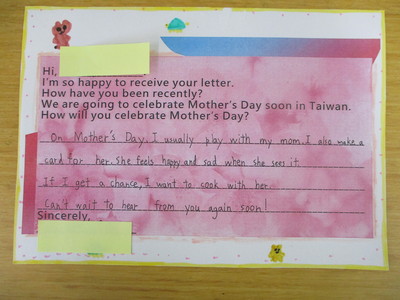 Hi,
I'm so happy to receive your letter.
How have you been recently?
We are going to celebrate Mother's Day soon in Taiwan.
How will you celebrate Mother's Day?
On Mother's Day, I usually play with my mom. I also make a
card for her. She feels happy and sad when she sees it.
If I get a chance, I want to cook with her.
Can't wait to hear from you again soon!
Sincerely,